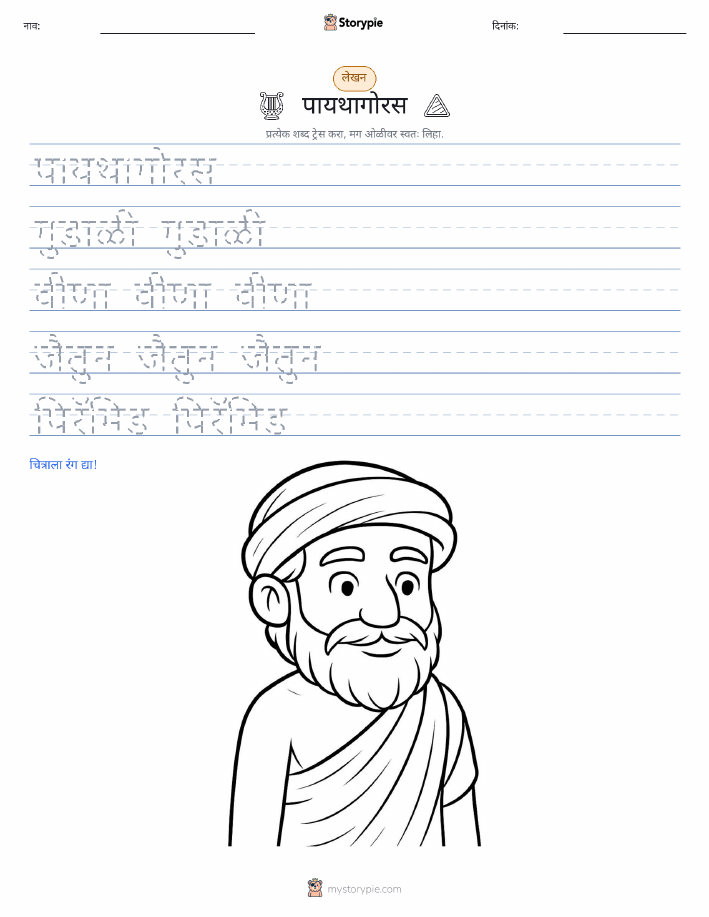 नाव:
Storypie
दिनांक:
लेखन
पायथागोरस
प्रत्येक शब्द ट्रेस करा, मग ओळीवर स्वतः लिहा.
पायथागोरस
गुडाळी गुडाळी
वीणा वीणा वीणा
जैतुन जैतुन जैतुन
पिरॅमिड पिरॅमिड
चित्राला रंग द्या!
mystorypie.com